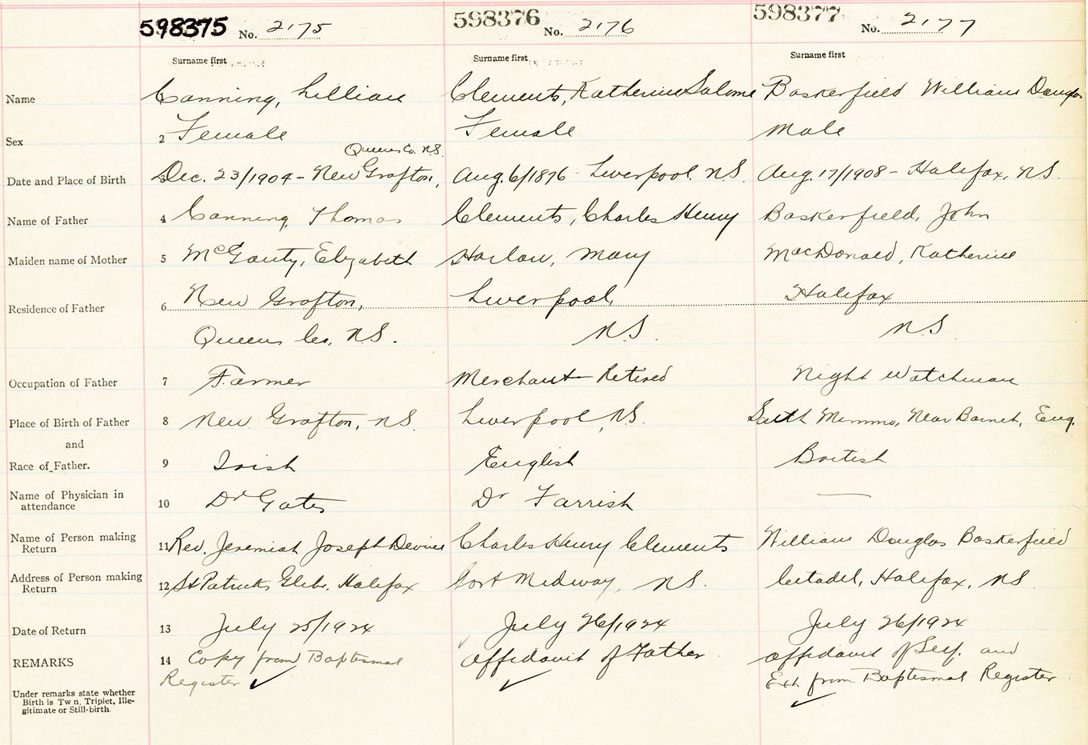 598375 No. 2175 598376 No. 2176 598377 No. 2177
Surname first Surname first Surname first
Name Canning, Lillian Clements, Katherine Salome Baskerfield William Douglas
Sex 2 Female Female Male
Queens Co. N.S.
Date and Place of Birth Dec. 23/1904 - New Grafton, Aug. 6/1896 - Liverpool N.S. Aug. 17/1908 - Halifax, N.S.
Name of Father 4 Canning, Thomas Clements, Charles Henry Baskerfield, John
Maiden name of Mother 5 McGauty, Elizabeth Harlow, Mary MacDonald, Katherine
Residence of Father 6 New Grafton, Liverpool, Halifax
Queens Co, N.S. N.S. N.S
Occupation of Father 7 Farmer Merchant - Retired Night Watchman
Place of Birth of Father 8 New Grafton, N.S. Liverpool, N.S. South Mimms, Near Barnet, Eng.
and
Race of Father. 9 Irish English British
Name of Physician in
attendance 10 Dr Gates Dr Farrish —
Name of Person making
Return 11 Rev. Jeremiah Joseph Devine Charles Henry Clements William Douglas Baskerfield
Address of Person making
Return 12 St Patricks Glebe, Halifax Port Medway, N.S. Citadel, Halifax, N.S
Date of Return 13 July 25/1924 July 26/1924 July 26/1924
REMARKS 14 Copy from Baptismal Affidavit of Father Affidavit of Self. and
Register ✓ ✓ Ext. from Baptismal Register
Under remarks state whether
Birth is Twin, Triplet, Ille-
gitimate or Still-birth